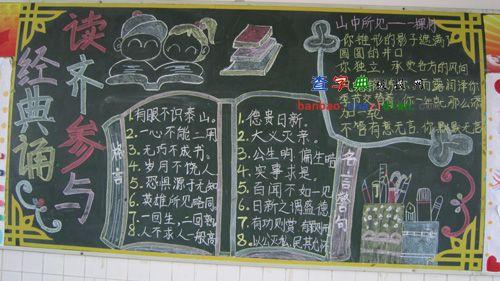 经典诵读
齐参与
格言
1.有眼不识泰山。
2.一心不能二用
3.无巧不成书。
4.岁月不饶人
5.恐惧源于无知
6.英雄所见略同
7.一回生,二回熟
8.人不求人一般高
1.德贵日新。
2.大义灭亲。
3.公生明,偏生暗
4.实事求是。
5.百闻不如一见
6.日新之谓盛德
7.有功则赏,有罪则
8.以公灭私,民其允怀
名言警句
山中所见——一棵树
你锥形的影子遮满了
圆圆的井口
你独立,承受各方的风向
加一轮
不惜有意无言,你默默无言
查字典